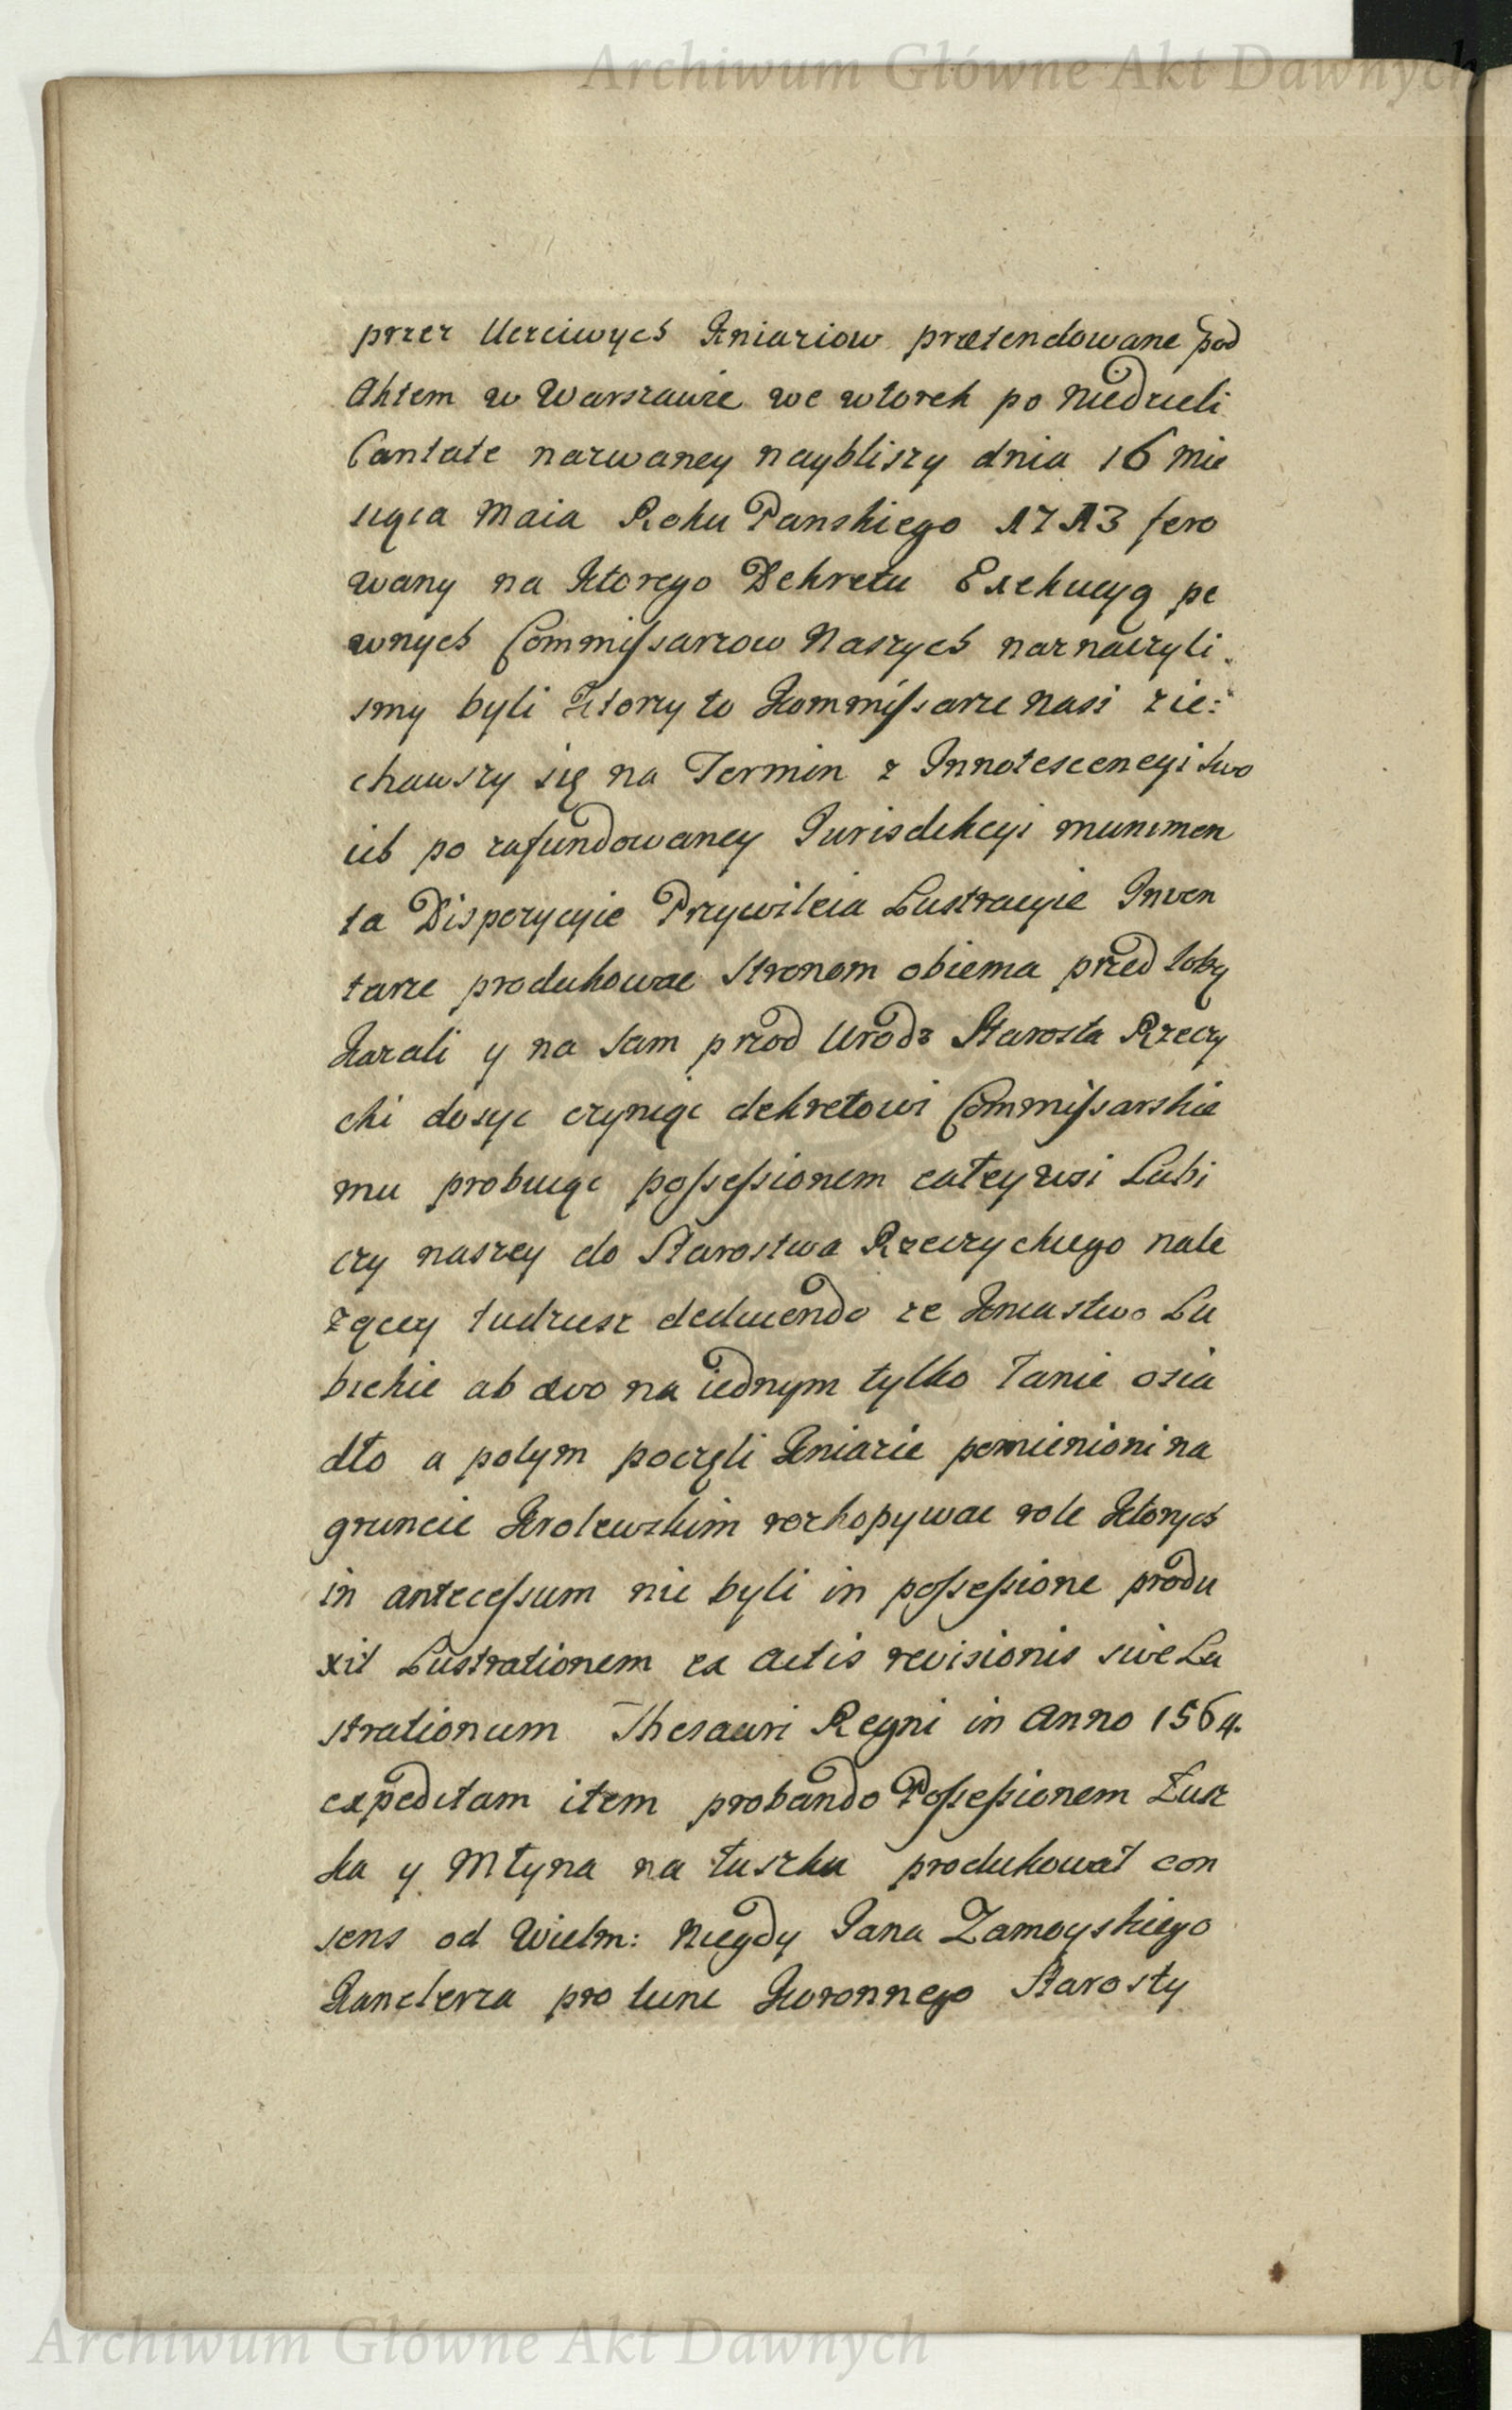 Archiwum Główne Akt Dawnych
przez Uczciwych Kniaziow prætendowane pod
Aktem w Warszawie we wtorek po Niedzieli
Cantate nazwaney naybliszy dnia 16 Mie
siąca Maia Roku Panskiego 1713 fero
wany na Ktorego Dekretu Exekucyą pe
wnych Commissarzow Naszych naznaczyli
smy byli Ktorzy to Kommissarze Nasi zie:
chawszy się na Termin z Innotescencyi swo
ich po zafundowaney Jurisdikcyi munimen
ta Dispozycyie Przywileia Lustracyie Inven
tarze produkowac Stronom obiema przed sobą
Kazali y na sam przod Urodz Starosta Rzeczy
cki dosyc czyniąc dekretowi Commissarskie
mu probuiąc possessionem całey wsi Lubi
czy naszey do Starostwa Rzeczyckiego nale
zącey tudziesz deducendo ze Kniastwo Lu
bickie ab avo na iednym tylko Łanie osia
dło a potym poczęli Kniazie pomienioni na
gruncie Krolewskim rozkopywac role Ktorych
in antecessum nie byli in possessione produ
xit Lustrationem ex Actis revisionis sive Lu
strationum Thesauri Regni in Anno 1564.
expeditam item probando Possessionem Łusz
ka y Młyna na Łuszku produkował con
sens od Wielm: Niegdy Jana Zamoyskiego
Kanclerza pro tunc Koronnego Starosty
Archiwum Główne Akt Dawnych